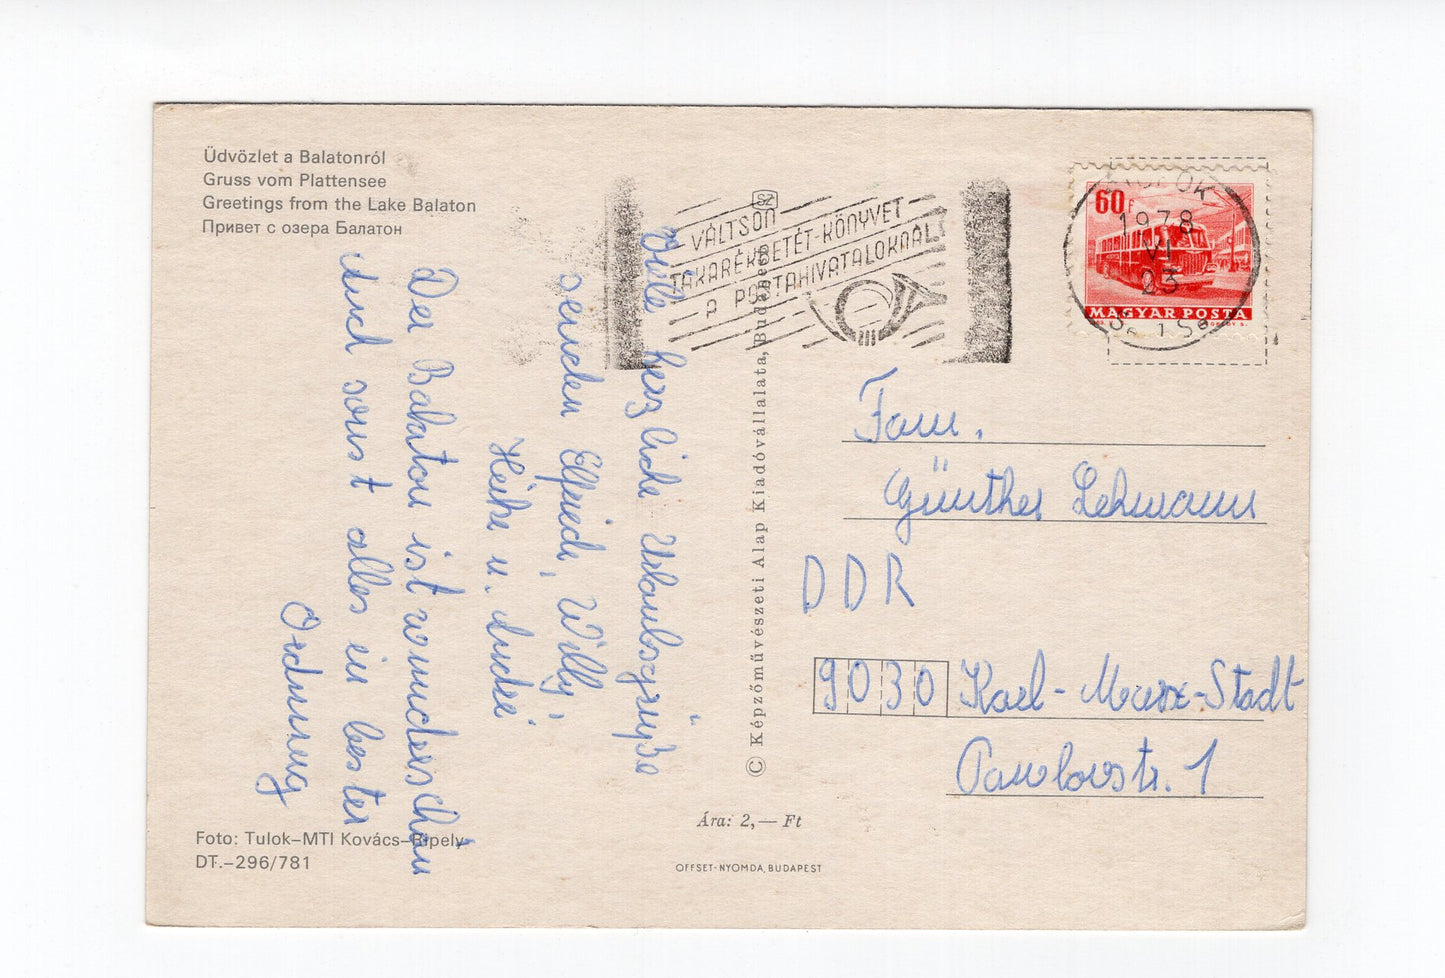 Üdvözlet a Balatonról
Gruss vom Plattensee
Greetings from the Lake Balaton
Привет с озера Балатон
SZ
VÁLTSON
TAKARÉKBETÉT-KÖNYVET
A POSTAHIVATALOKNÁL!
60f
MAGYAR POSTA
SIÓFOK
1978
VI
23
Viele herzliche Urlaubsgrüße
senden Elfriede, Willy,
Heike u. André
Der Balaton ist wunderschön
Und sonst alles in bester
Ordnung
© Képzőművészeti Alap Kiadóvállalata, Budapest
Fam.
Günther Lehmann
DDR
9030 Karl-Marx-Stadt
Pawlowstr. 1
Foto: Tulok–MTI Kovács–Ripely
DT.–296/781
Ára: 2,— Ft
OFFSET-NYOMDA, BUDAPEST